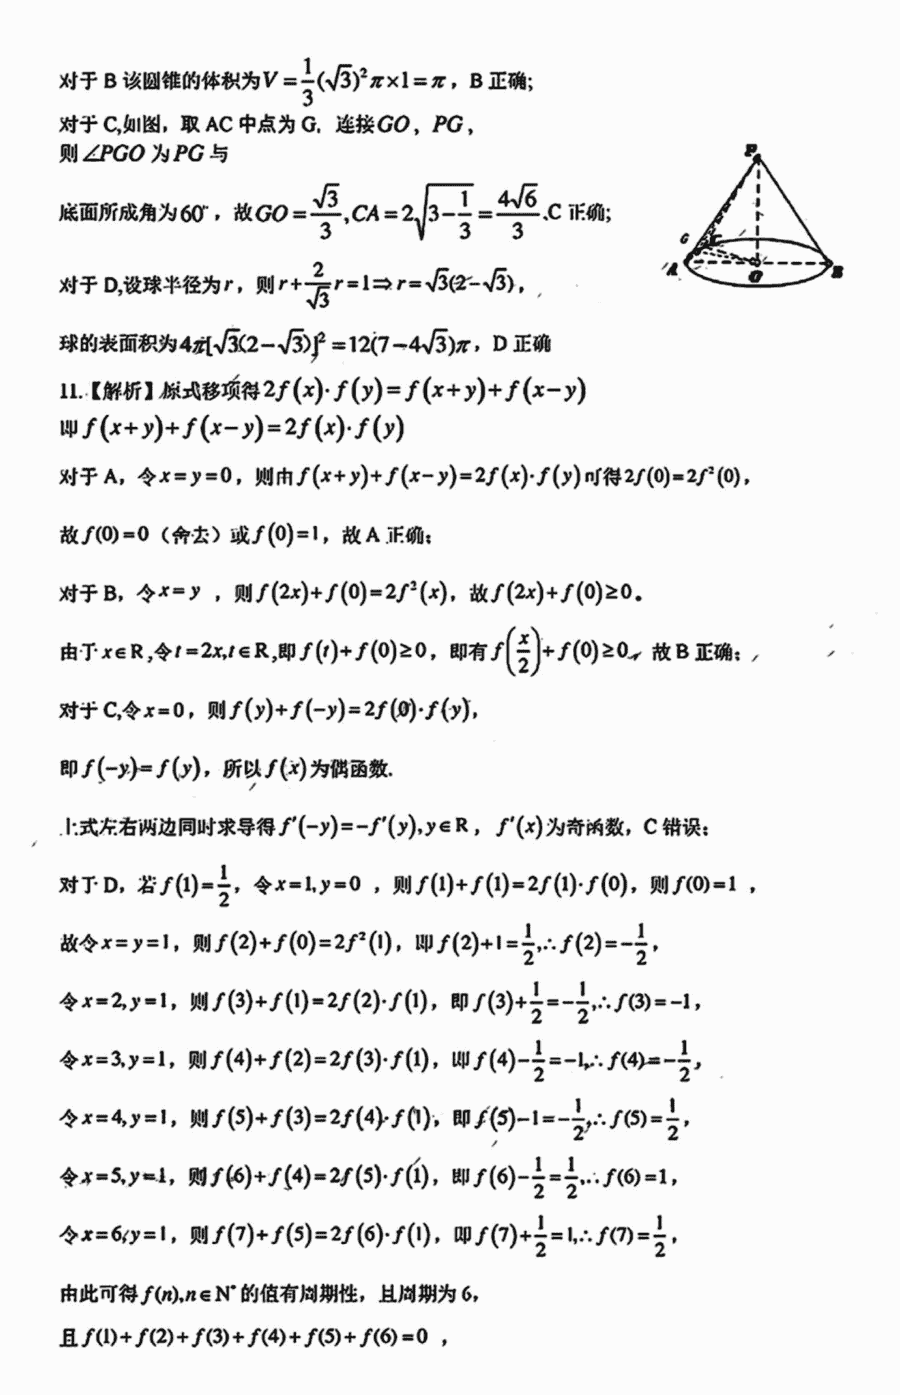 对于 B 该圆锥的体积为V=\frac{1}{3}(√3)²π×1=π，B 正确;
对于 C,如图，取 AC 中点为 G，连接GO，PG，
则 ∠PGO 为 PG 与
底面所成角为60°，故GO=\frac{√3}{3},CA=2\sqrt{3-\frac{1}{3}}=\frac{4√6}{3}.C 正确;
P
G
C
A
O
B
对于 D,设球半径为r，则r+\frac{2}{√3}r=1⇒r=√3(2-√3)，
球的表面积为4π[√3(2-√3)]²=12(7-4√3)π，D 正确
11.【解析】原式移项得2f(x)·f(y)=f(x+y)+f(x-y)
即f(x+y)+f(x-y)=2f(x)·f(y)
对于 A，令x=y=0，则由f(x+y)+f(x-y)=2f(x)·f(y)可得2f(0)=2f²(0)，
故f(0)=0（舍去）或f(0)=1，故 A 正确；
对于 B，令x=y ，则f(2x)+f(0)=2f²(x)，故f(2x)+f(0)≥0。
由于x∈R,令t=2x,t∈R,即f(t)+f(0)≥0，即有f(\frac{x}{2})+f(0)≥0，故 B 正确；
对于 C,令x=0，则f(y)+f(-y)=2f(0)·f(y)，
即f(-y)=f(y)，所以f(x)为偶函数.
上式左右两边同时求导得f′(-y)=-f′(y),y∈R，f′(x)为奇函数，C 错误；
对于 D，若f(1)=\frac{1}{2}，令x=1,y=0 ，则f(1)+f(1)=2f(1)·f(0)，则f(0)=1 ，
故令x=y=1，则f(2)+f(0)=2f²(1)，即f(2)+1=\frac{1}{2},∴f(2)=-\frac{1}{2}，
令x=2,y=1，则f(3)+f(1)=2f(2)·f(1)，即f(3)+\frac{1}{2}=-\frac{1}{2},∴f(3)=-1，
令x=3,y=1，则f(4)+f(2)=2f(3)·f(1)，即f(4)-\frac{1}{2}=-1,∴f(4)=-\frac{1}{2}，
令x=4,y=1，则f(5)+f(3)=2f(4)·f(1)，即f(5)-1=-\frac{1}{2},∴f(5)=\frac{1}{2}，
令x=5,y=1，则f(6)+f(4)=2f(5)·f(1)，即f(6)-\frac{1}{2}=\frac{1}{2},∴f(6)=1，
令x=6,y=1，则f(7)+f(5)=2f(6)·f(1)，即f(7)+\frac{1}{2}=1,∴f(7)=\frac{1}{2}，
由此可得f(n),n∈N*的值有周期性，且周期为 6，
且f(1)+f(2)+f(3)+f(4)+f(5)+f(6)=0 ，